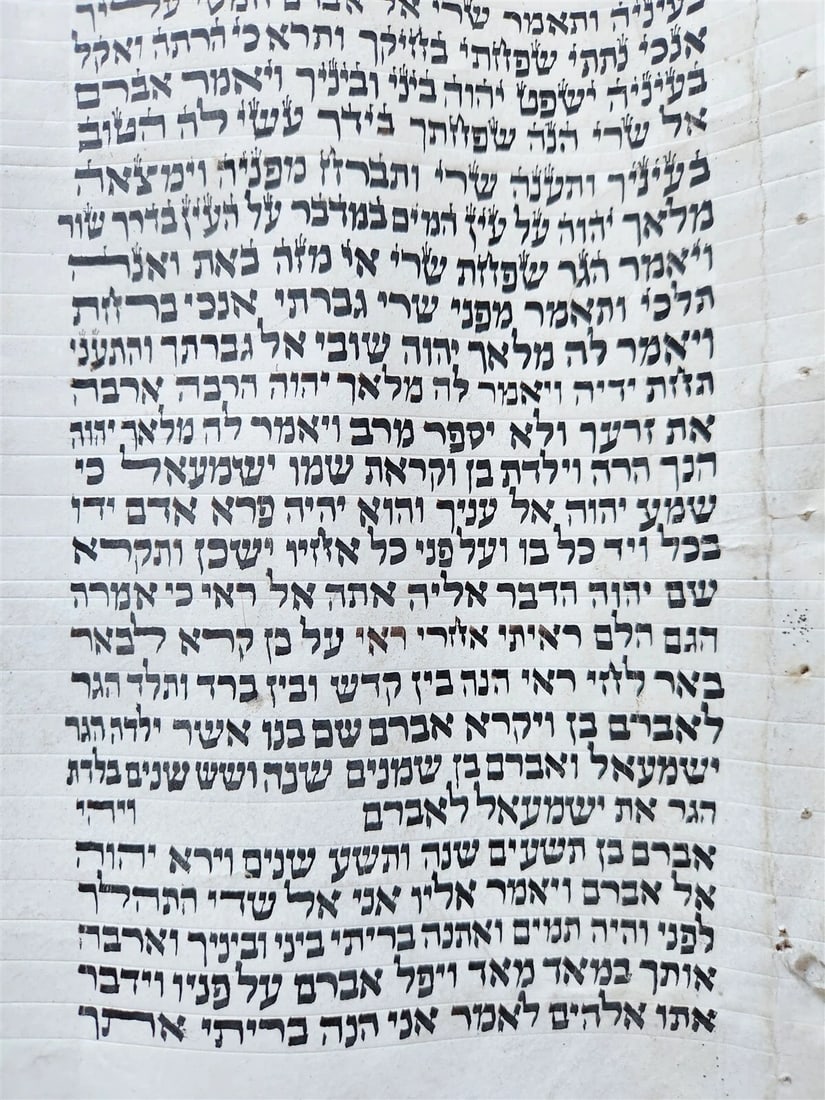 בעיניה ותאמר שרי אל אברם חמסי עליך
אנכי נתתי שפחתי בחיקך ותרא כי הרתה ואקל
בעיניה ישפט יהוה ביני וביניך ויאמר אברם
אל שרי הנה שפחתך בידך עשי לה הטוב
בעיניך ותענה שרי ותברח מפניה וימצאה
מלאך יהוה על עין המים במדבר על העין בדרך שור
ויאמר הגר שפחת שרי אי מזה באת ואנה
תלכי ותאמר מפני שרי גברתי אנכי ברחת
ויאמר לה מלאך יהוה שובי אל גברתך והתעני
תחת ידיה ויאמר לה מלאך יהוה הרבה ארבה
את זרעך ולא יספר מרב ויאמר לה מלאך יהוה
הנך הרה וילדת בן וקראת שמו ישמעאל כי
שמע יהוה אל עניך והוא יהיה פרא אדם ידו
בכל ויד כל בו ועל פני כל אחיו ישכן ותקרא
שם יהוה הדבר אליה אתה אל ראי כי אמרה
הגם הלם ראיתי אחרי ראי על כן קרא לבאר
באר לחי ראי הנה בין קדש ובין ברד ותלד הגר
לאברם בן ויקרא אברם שם בנו אשר ילדה הגר
ישמעאל ואברם בן שמנים שנה ושש שנים בלדת
הגר את ישמעאל לאברם ויהי
אברם בן תשעים שנה ותשע שנים וירא יהוה
אל אברם ויאמר אליו אני אל שדי התהלך
לפני והיה תמים ואתנה בריתי ביני וביניך וארבה
אותך במאד מאד ויפל אברם על פניו וידבר
אתו אלהים לאמר אני הנה בריתי אתך